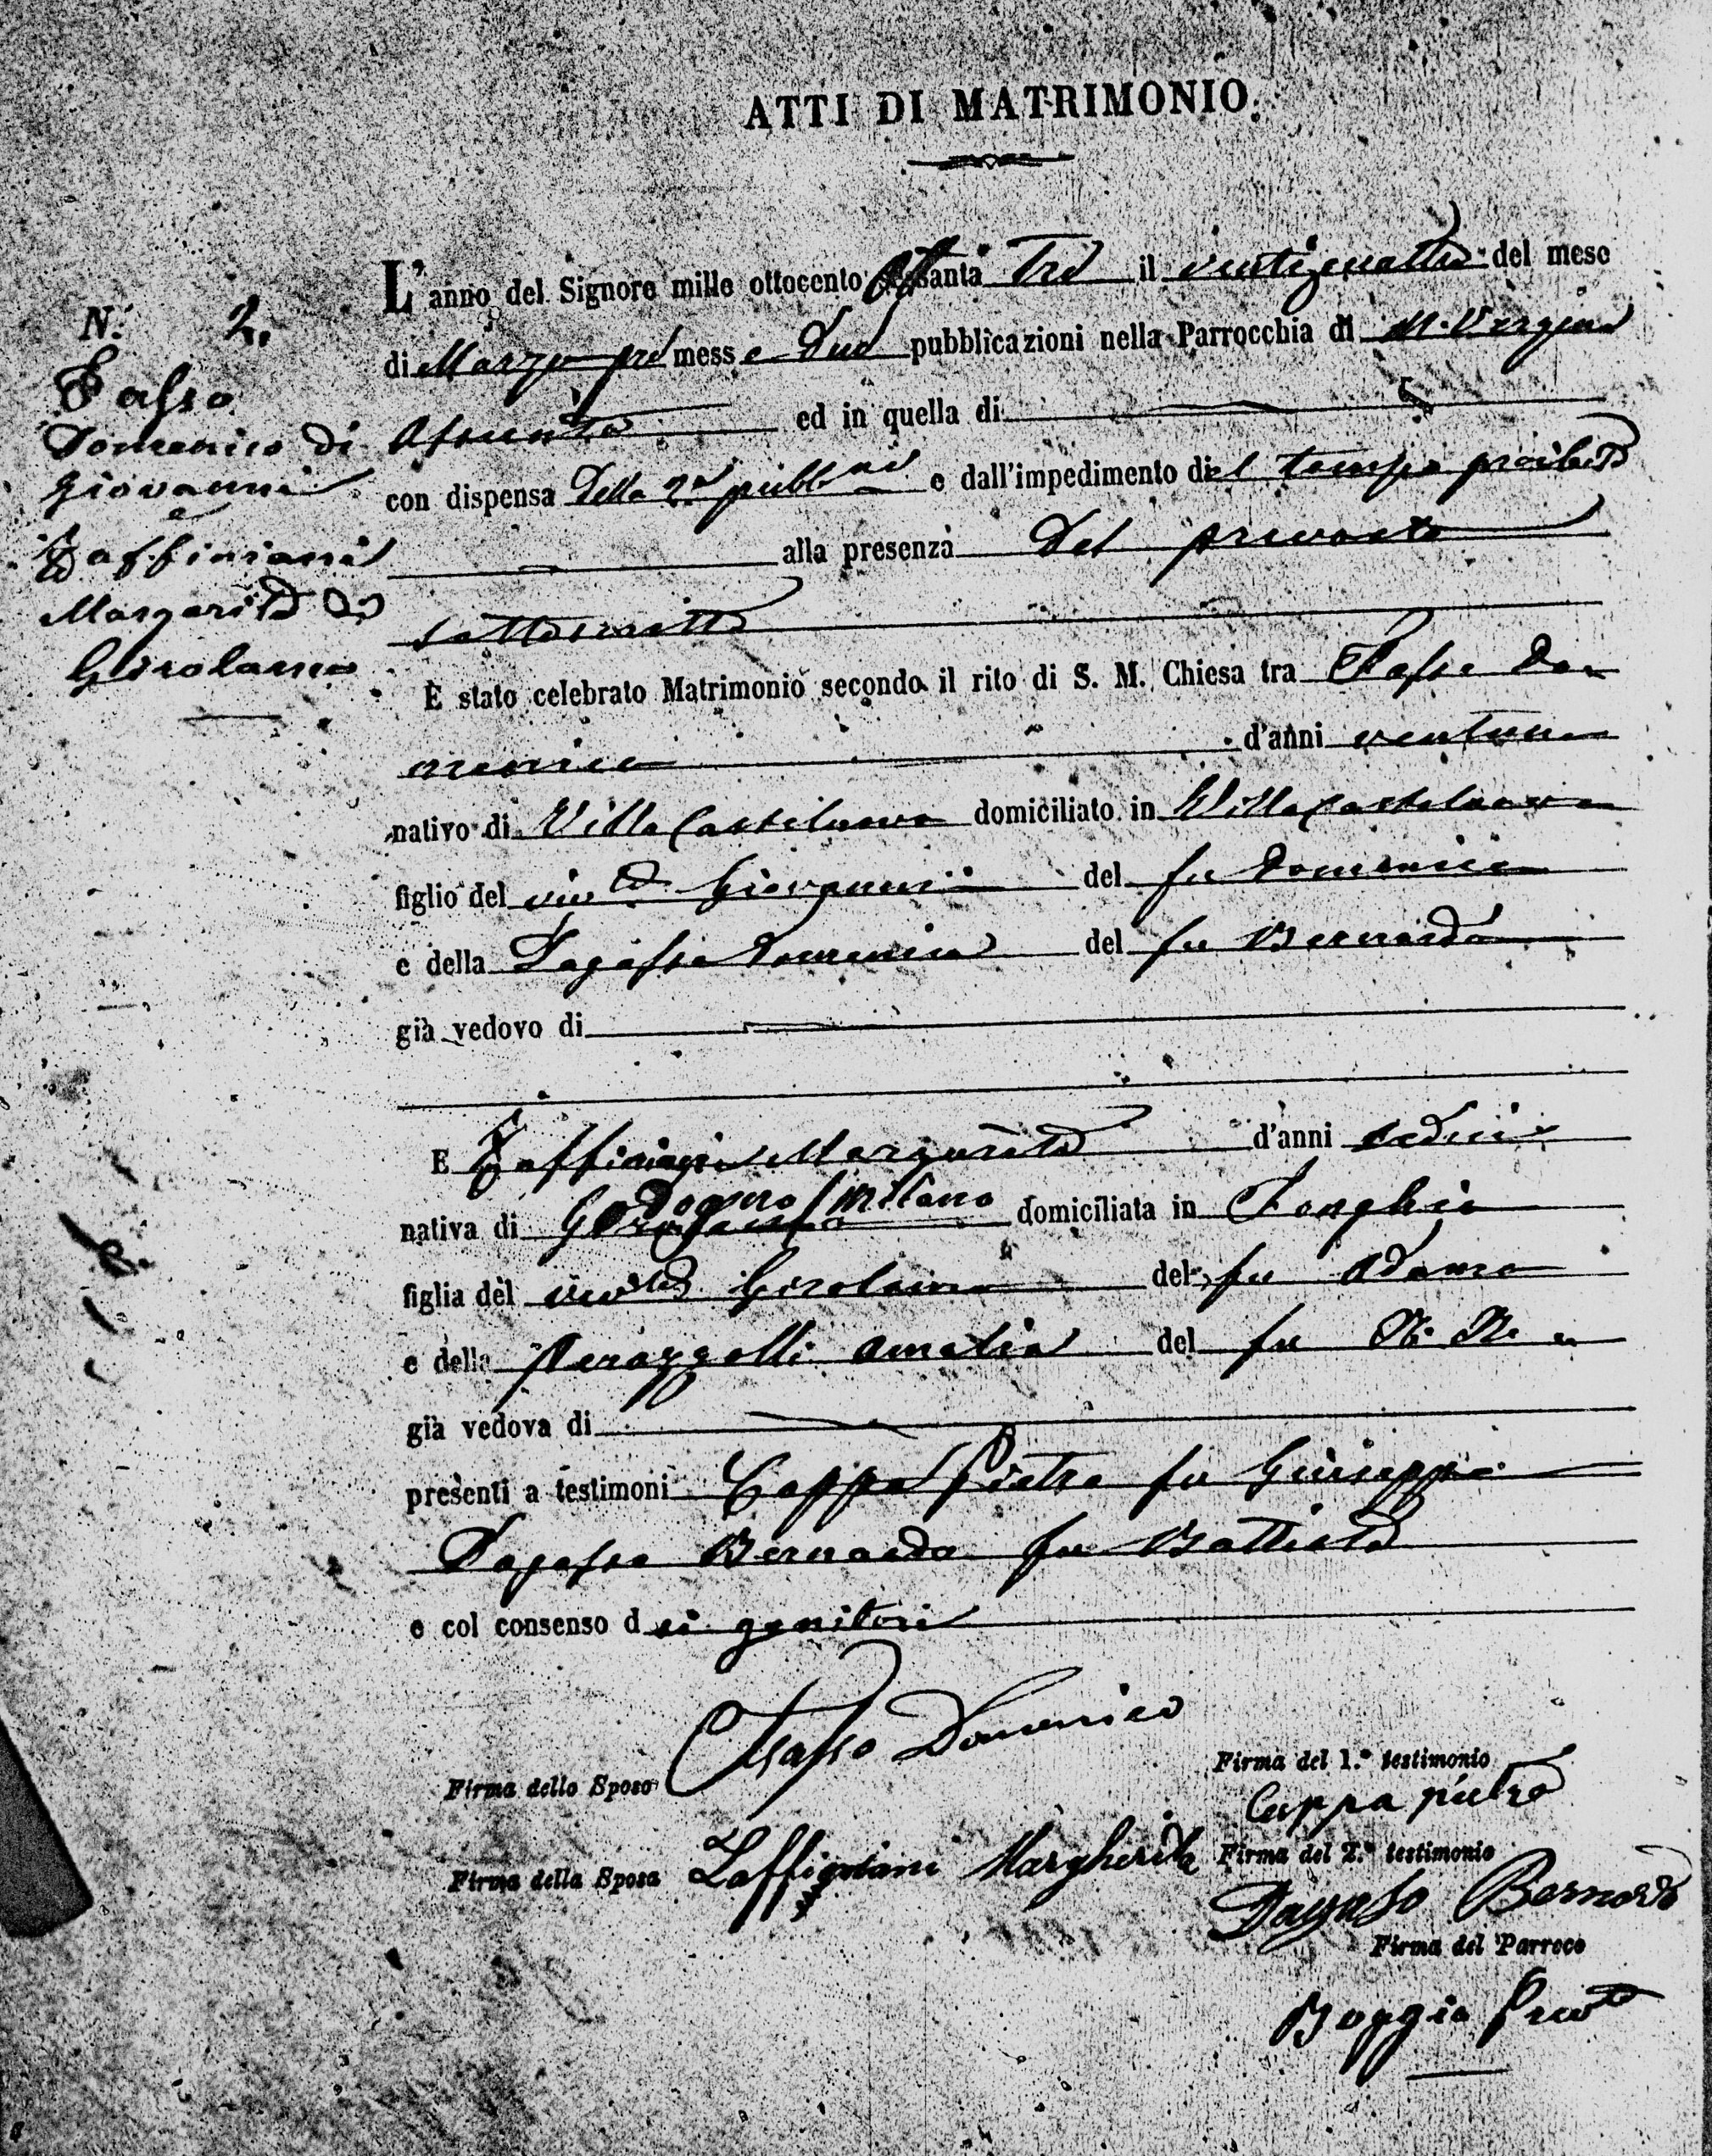 ATTI DI MATRIMONIO.
L'anno del Signore mille ottocento Ottanta Tre il ventiquattro del mese
di Marzo premesse due pubblicazioni nella Parrocchia di M. Vergine
Assunta ed in quella di
con dispensa della 2a e dall'impedimento del tempo proibito
alla presenza del prevosto
sottoscritto
È stato celebrato Matrimonio secondo il rito di S. M. Chiesa tra Fasso Do-
menico d'anni ventuno
nativo di Villa Castelnuovo domiciliato in Villa Castelnuovo
figlio del vivte Giovanni del fu Domenico
e della Dagasso Domenica del fu Bernardo
già vedovo di
E Zaffiniani Margarita d'anni sedici
nativa di Milano domiciliata in
figlia del vivte Girolamo del fu Adamo
e della Perazzelli Amalia del fu N. N.
già vedova di
presenti a testimoni Cappa Pietro fu Giuseppe
Dagasso Bernardo fu Battista
e col consenso dei genitori
N. 2.
Fasso
Domenico di
Giovanni
e
Zaffiniani
Margarita di
Girolamo
Firma dello Sposo Domenico
Firma della Sposa Margherita
Firma del 1.° testimonio
Cappa pietro
Firma del 2.° testimonio
Dagasso Bernardo
Firma del Parroco
Boggio Prevto